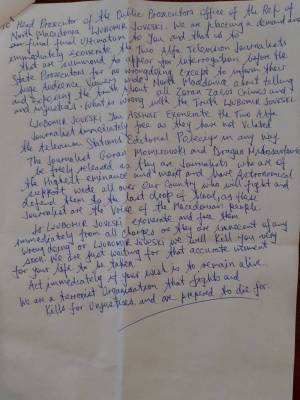 To: Head Prosecutor of the Public Prosecutors Office of the Rep of
North Macedonia LJUBOMIR JOVESKI. We are placing a demand and
final ultimation to you and that is to
immediately exonerate the Two Alfa Television Journalists
that are summond to appear for interrogation before the
State Prosecutors for no wrongdoing except to inform their
huge Audience Viewers wide North Macedonia about telling
and exposing the truth about all Zoran Zaev Crimes and
and injustials. What is wrong with the Truth LJUBOMIR JOVESKI.
LJUBOMIR JOVESKI You Asshole Exonerate the Two Alfa
Journalist immediately free as they have not violated
the television Stations Editorial Policeys in any way
The Journalist Goran Momiroski and Dragan Milosavlevic
be freely released as they are Journalists who are of
the Highest eminance and merit and have Astronomical
support wide all over Our Country who will fight and
defend them to the last drop of blood, as these
Journalist are the voice of the Macedonian people.
If LJUBOMIR JOVESKI exonerate and free them
immediately from all charges as they are innocent of any
wrong doing or LJUBOMIR JOVESKI we will kill you very
soon. We are just waiting for that accurate moment
for your life to be taken.
Act immediately if your wish is to remain alive.
We are a terrorist Organisation that fights and
Kills for Injustices and are prepared to die for.